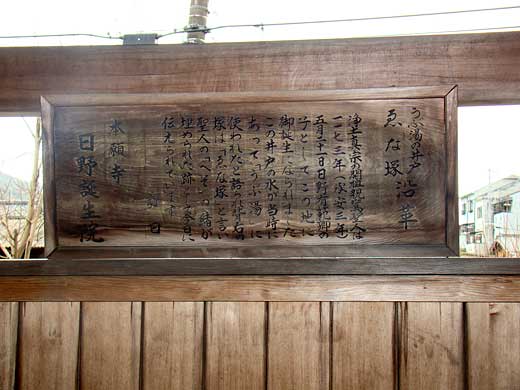 うぶ湯の井戸
ゑな塚 沿革
浄土真宗の開祖親鸞聖人は
一一七三年(承安三年)
五月二十一日日野有範卿の
子としてこの地に
御誕生になられました
この井戸の水が当時に
あってうぶ湯に
使われたと語り
塚はゑな塚と言い
聖人のへその緒が
埋められた跡だと今日に
伝えられています
本願寺
日野誕生院